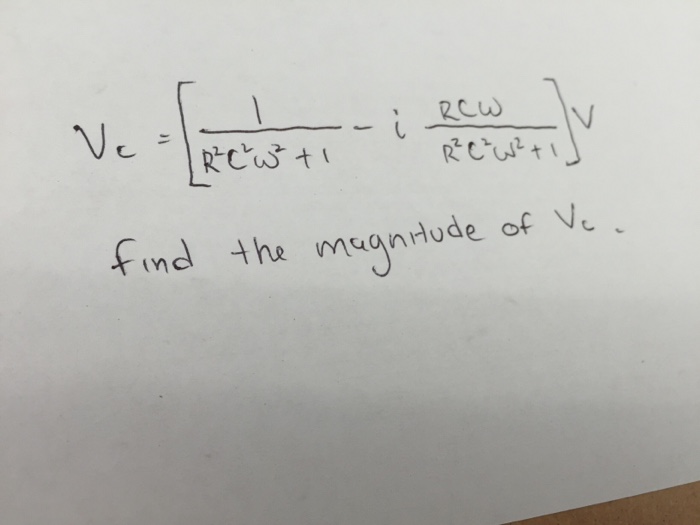 V_c = [ 1 / (R²C²ω² + 1) - i RCω / (R²C²ω² + 1) ] V
find the magnitude of V_c.